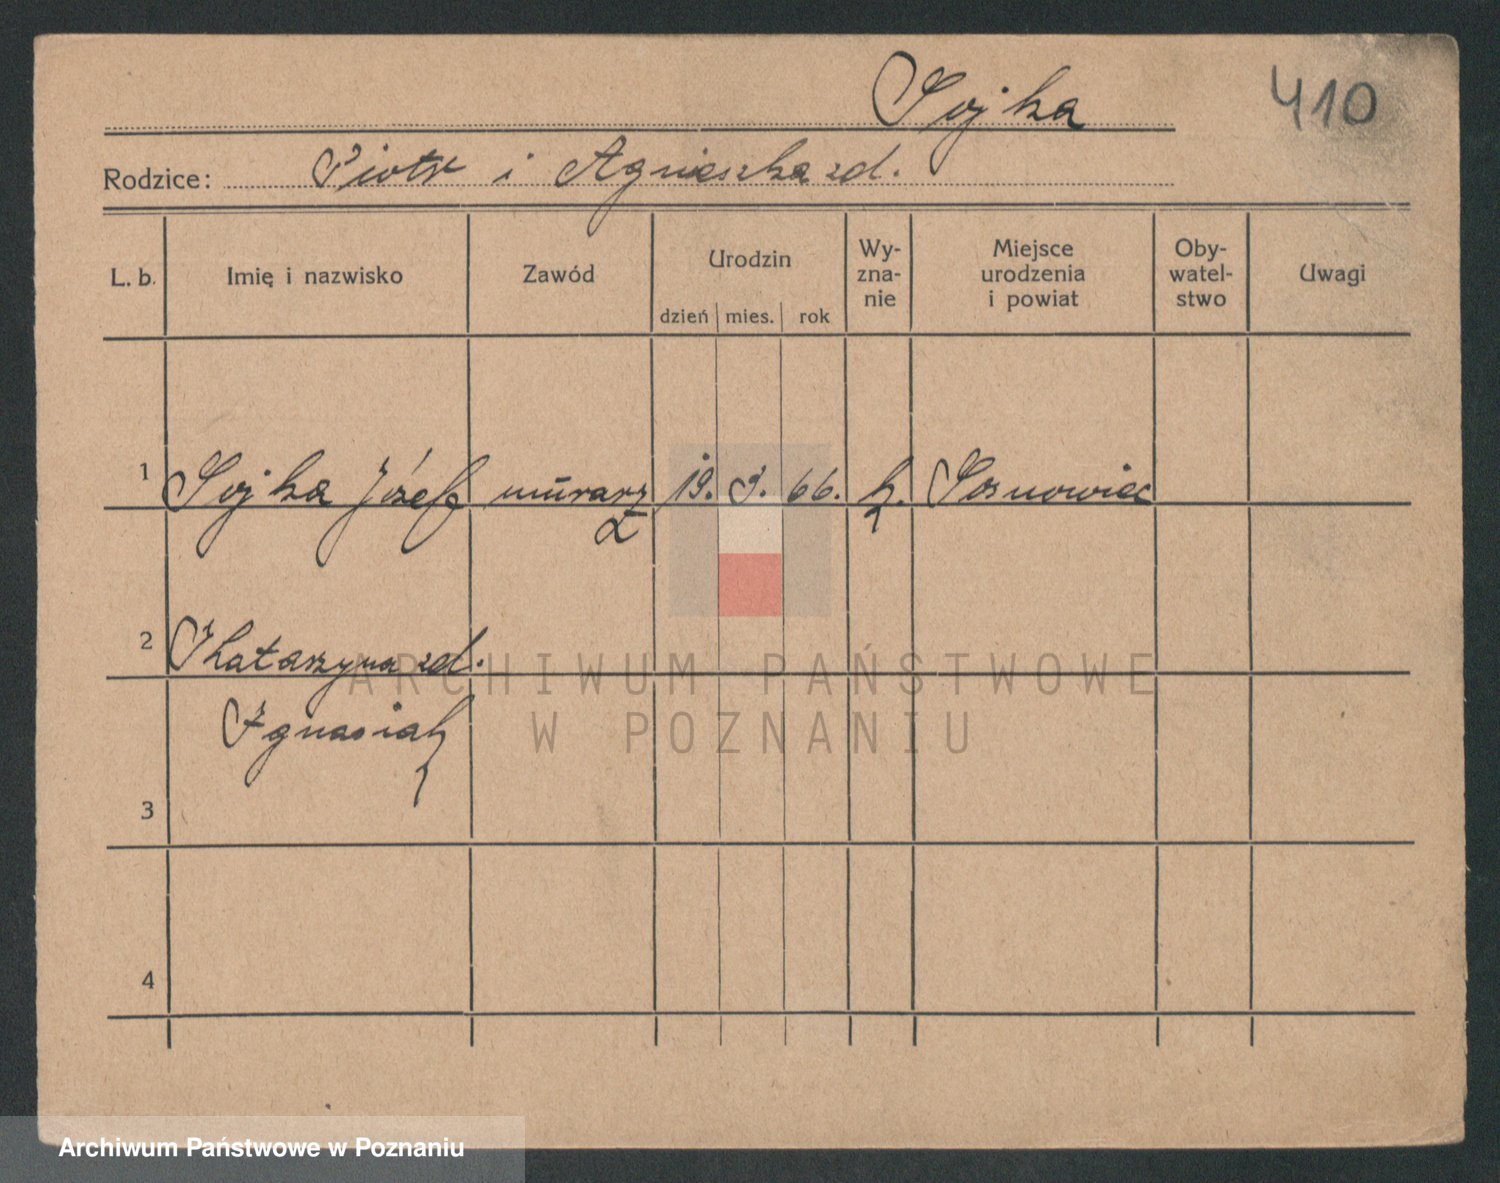 Sojka
410
Rodzice: Piotr i Agnieszka zd.
L. b. Imię i nazwisko Zawód Urodzin dzień mies. rok Wy-zna-nie Miejsce urodzenia i powiat Oby-watel-stwo Uwagi
1 Sojka Józef murarz 19. 3. 66. k. Sosnowiec
2 Katarzyna zd.
Ignasiak
3
4
ARCHIWUM PAŃSTWOWE
W POZNANIU
Archiwum Państwowe w Poznaniu